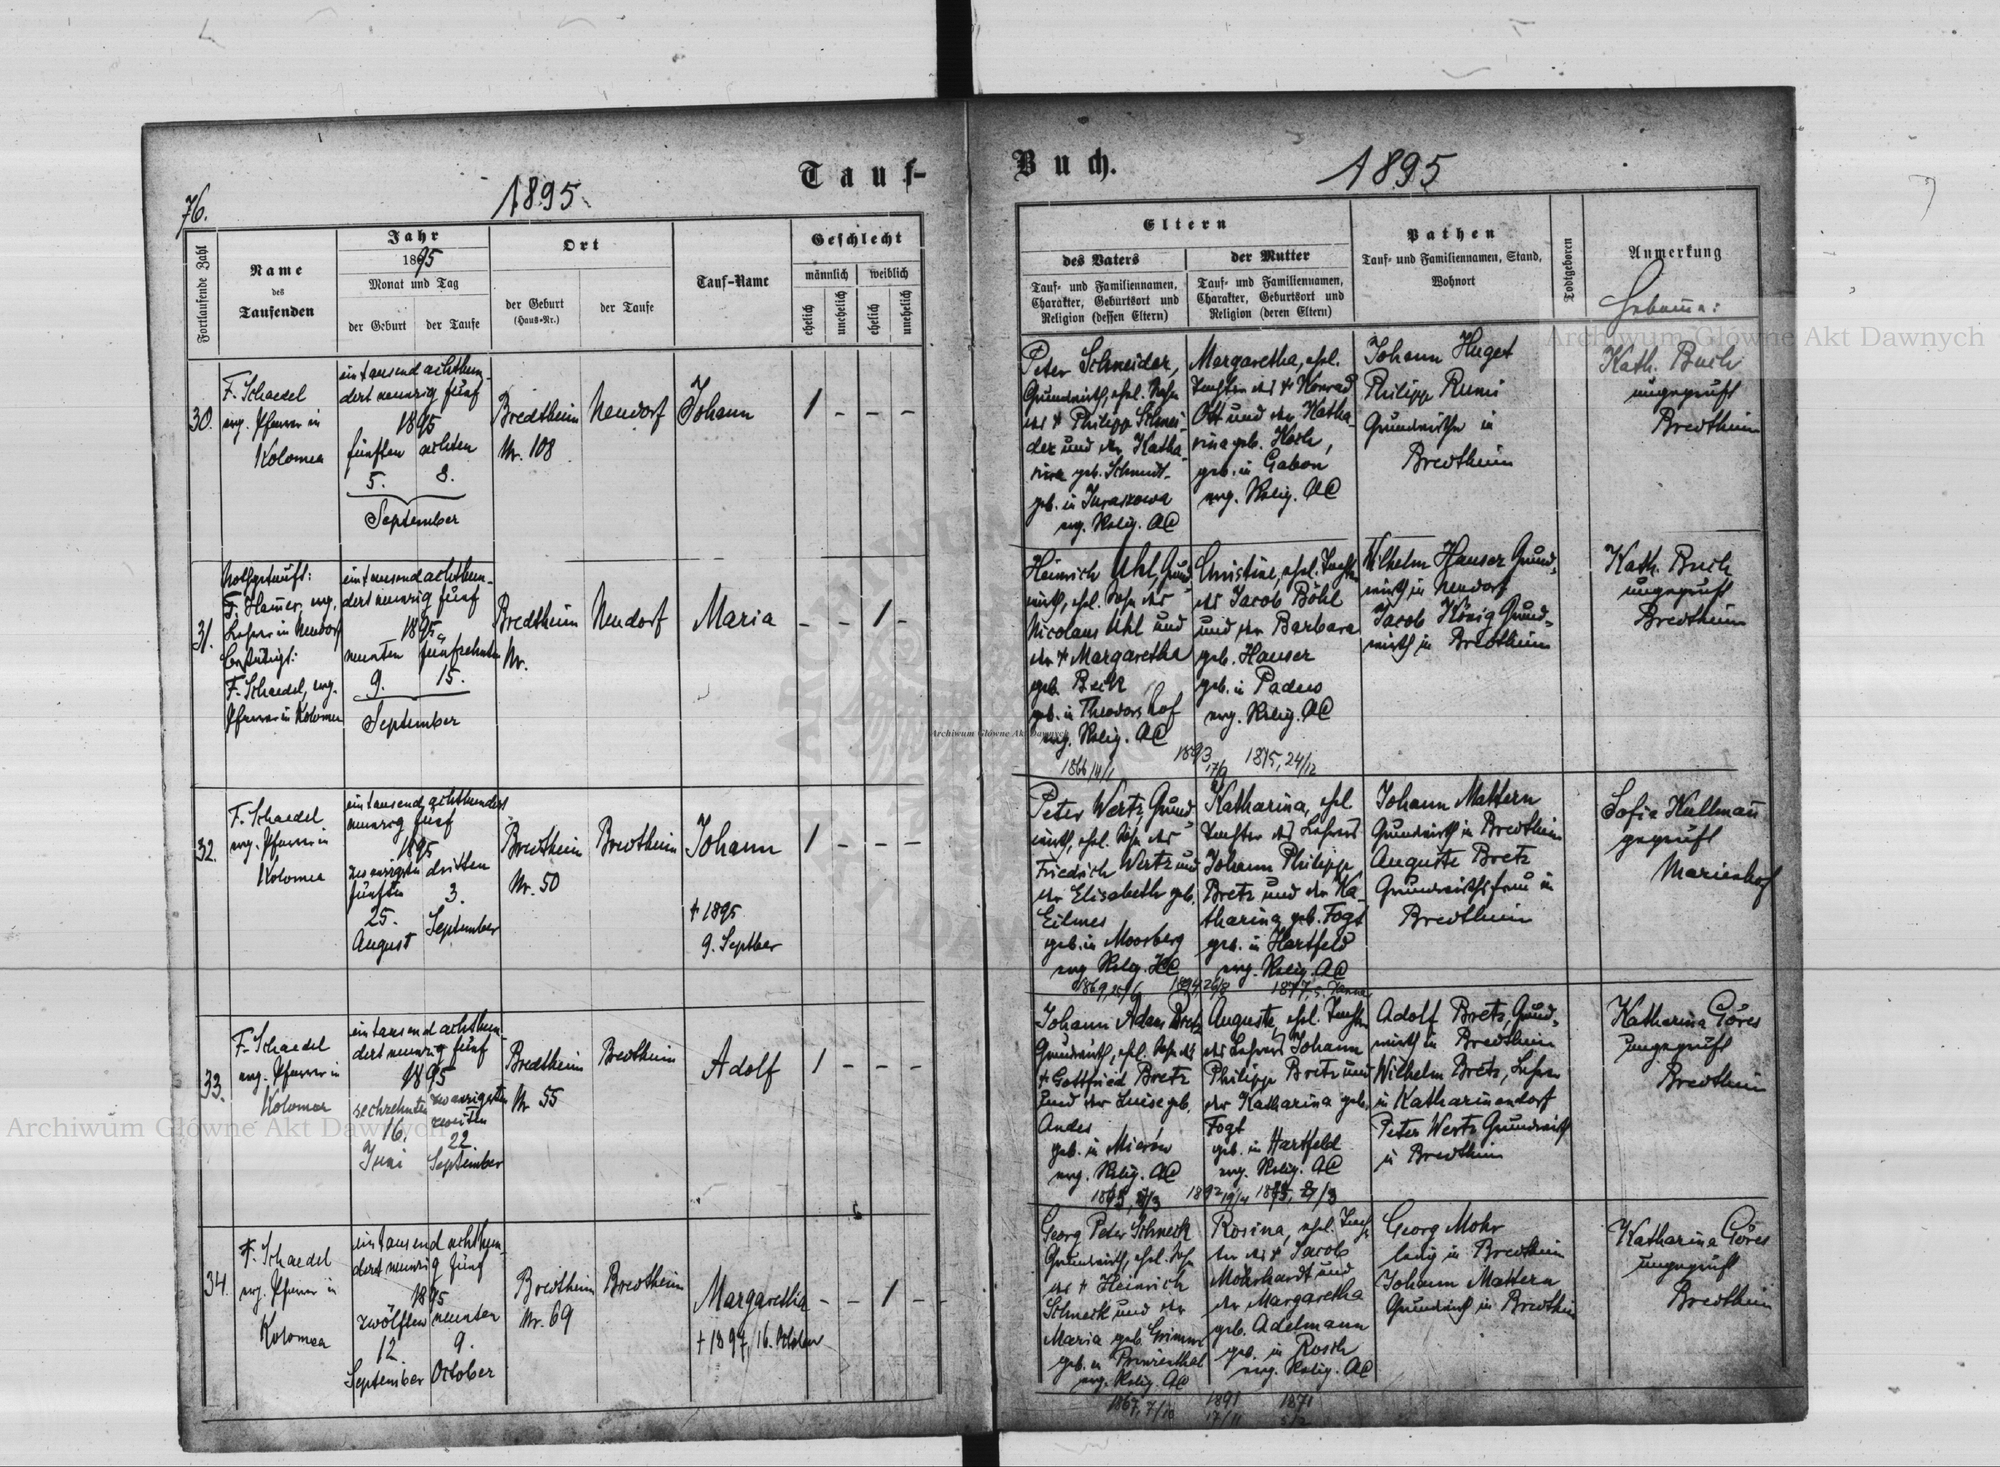 76.
1895
Tauf-
Buch.
1895
Fortlaufende Zahl
Name
des
Taufenden
Jahr
1895
Monat und Tag
der Geburt
der Taufe
Ort
der Geburt
(Haus-Nr.)
der Taufe
Tauf-Name
Geschlecht
männlich
weiblich
ehelich
unehelich
ehelich
unehelich
Eltern
des Vaters
Tauf- und Familiennamen,
Charakter, Geburtsort und
Religion (dessen Eltern)
der Mutter
Tauf- und Familiennamen,
Charakter, Geburtsort und
Religion (deren Eltern)
Pathen
Tauf- und Familiennamen, Stand,
Wohnort
Todtgeboren
Anmerkung
30.
F. Schaedel
evg. Pfarrer in
Kolomea
eintausend achthun-
dert neunzig fünf
1895
fünften achten
5. 8.
September
Bredtheim
Nr. 108
Neudorf
Johann
1 - - -
Peter Schneider,
Grundwirth, ehel. Sohn
des † Philipp Schnei-
der und der Katha-
rina geb. Schmidt
geb. in
evg. Relig. AC
Margaretha, ehel.
Tochter des † Konrad
Ott und der Katha-
rina geb. Koch,
geb. in Gabon
evg. Relig. AC
Johann Huget
Philipp
Grundwirthe in
Bredtheim
Kath. Buch
ungeprüft
Bredtheim
31.
Nothgetauft:
evg.
Lehrer in Neudorf
bestätigt:
F. Schaedel, evg.
Pfarrer in Kolomea
eintausend achthun-
dert neunzig fünf
1895
neunten fünfzehnten
9. 15.
September
Bredtheim
Nr.
Neudorf
Maria
- - 1 -
Heinrich Uhl, Grund-
wirth, ehel. Sohn des
Nicolaus Uhl und
der † Margaretha
geb. Beck
geb. in Theodorshof
evg. Relig. AC
1866 14/1
Christine, ehel. Tochter
des Jacob Böhl
und der Barbara
geb. Hauser
geb. in Padew
evg. Relig. AC
1893 17/9
1875, 24/12
Wilhelm Hauser Grund-
wirth in Neudorf
Jacob König Grund-
wirth in Bredtheim
Kath. Buch
ungeprüft
Bredtheim
32.
F. Schaedel
evg. Pfarrer in
Kolomea
eintausend achthundert
neunzig fünf
1895
zwanzigsten dritten
fünften 3.
25. September
August
Bredtheim
Nr. 50
Bredtheim
Johann
† 1895
9. Septber
1 - - -
Peter Wertz, Grund-
wirth, ehel. Sohn des
Friedrich Wertz und
der Elisabeth geb.
Eilmes
geb. in Moosberg
evg Relig. HC
1869,
Katharina, ehel
Tochter des Lehrers
Johann Philipp
Bretz und der Ka-
tharina geb. Fogt
geb. in Hartfeld
evg. Relig. AC
1894 26/8
Johann Mattern
Grundwirth in Bredtheim
Auguste Bretz
Grundwirthsfrau in
Bredtheim
Sofie Kullmann
geprüft
Marienhof
33.
F. Schaedel
evg. Pfarrer in
Kolomea
eintausend achthun-
dert neunzig fünf
1895
sechzehnten zwanzigsten
16. zweiten
Juni 22.
September
Bredtheim
Nr 55
Bredtheim
Adolf
1 - - -
Johann Adam Bretz
Grundwirth, ehel. Sohn des
† Gottfried Bretz
und der Luise geb.
Andes
geb. in Mierów
evg. Relig. AC
Auguste, ehel. Tochter
des Lehrers Johann
Philipp Bretz und
der Katharina geb.
Fogt
geb. in Hartfeld
evg. Relig. AC
Adolf Bretz, Grund-
wirth in Bredtheim
Wilhelm Bretz, Lehrer
in Katharinendorf
Peter Wertz Grundwirth
in Bredtheim
Katharina Göres
ungeprüft
Bredtheim
34.
F. Schaedel
evg. Pfarrer in
Kolomea
eintausend achthun-
dert neunzig fünf
1895
zwölften neunten
12. 9.
September October
Bredtheim
Nr. 69
Bredtheim
Margaretha
† 1897, 16. October
- - 1 -
Georg Peter Schneck
Grundwirth, ehel. Sohn
des † Heinrich
Schneck und der
Maria geb. Grimm
geb. in Prinzenthal
evg. Relig. AC
1867, 7/10
Rosina, ehel. Toch-
ter des † Jacob
Mohrhardt und
der Margaretha
geb. Adelmann
geb. in Rosch
evg. Relig. AC
1891
17/11
1871
5/2
Georg Mohr
ledig in Bredtheim
Johann Mattern
Grundwirth in Bredtheim
Katharina Göres
ungeprüft
Bredtheim
Archiwum Główne Akt Dawnych
Archiwum Główne Akt Dawnych
Archiwum Główne Akt Dawnych